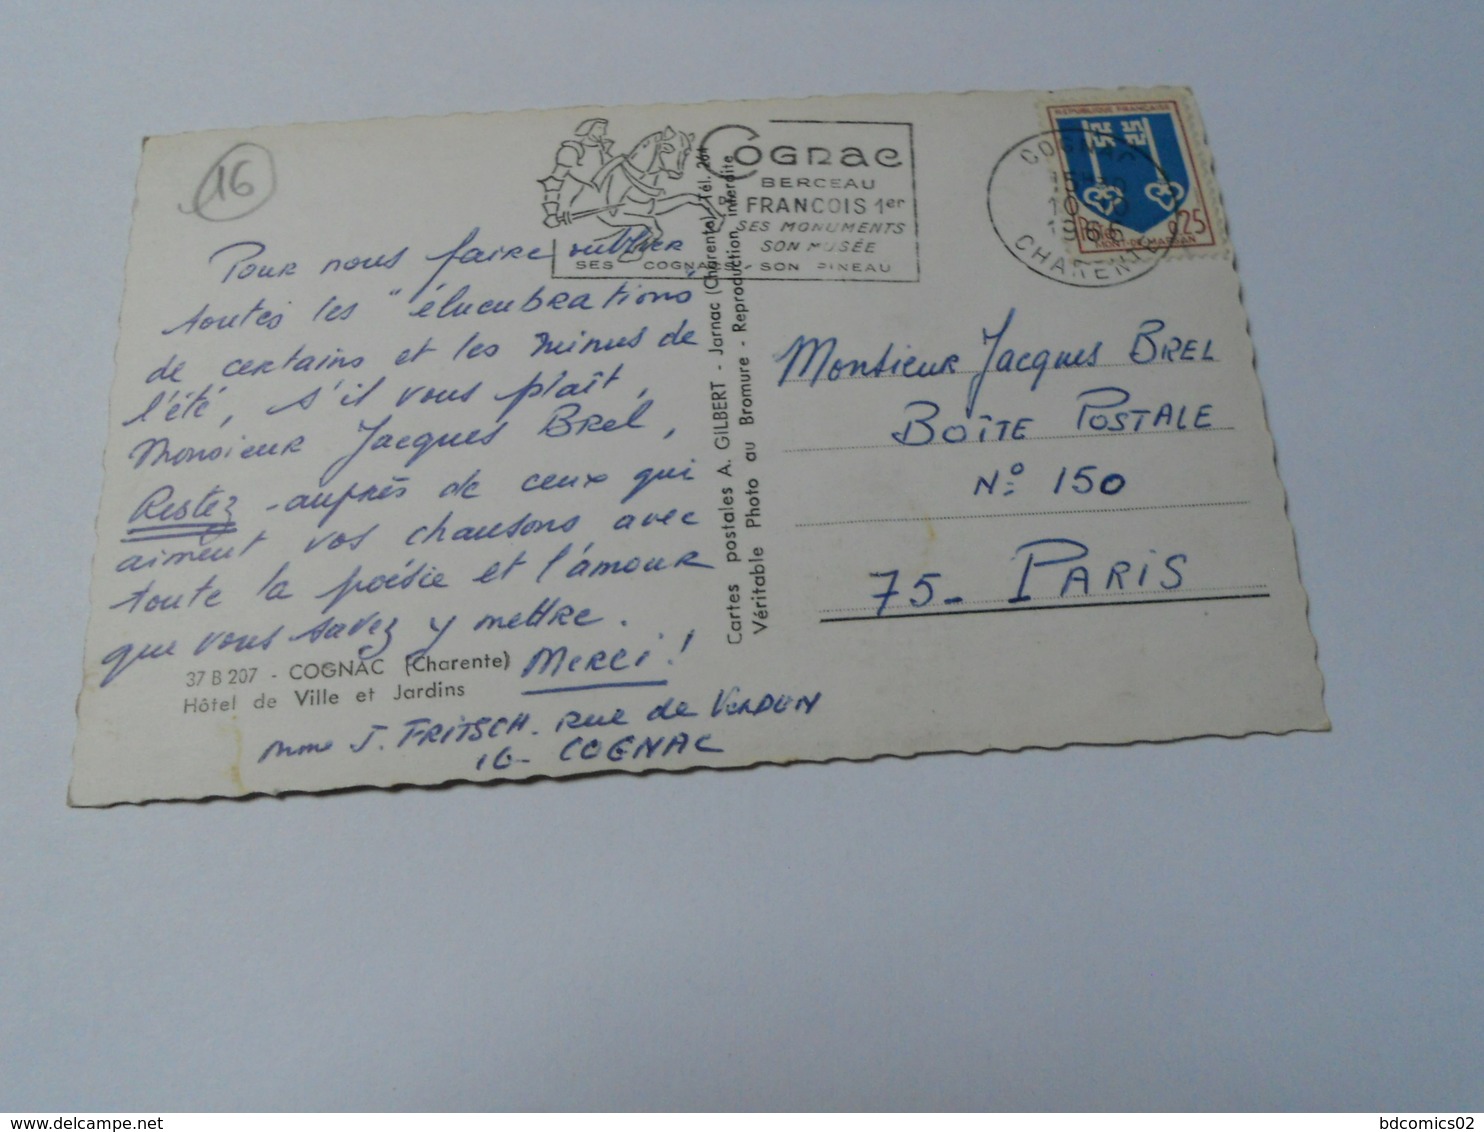 16
COGNAC
BERCEAU
FRANCOIS 1er
SES MONUMENTS
SON MUSÉE
SES COGNACS - SON PINEAU
COGNAC
10
1966
CHARENTE
REPUBLIQUE FRANÇAISE
0,25
MONT-DE-MARSAN
Pour nous faire oublier
toutes les "élucubrations"
de certains et les minus de
l'été, s'il vous plaît,
Monsieur Jacques Brel,
Restez - auprès de ceux qui
aiment vos chansons avec
toute la poésie et l'amour
que vous savez y mettre.
Merci !
37 B 207 - COGNAC (Charente)
Hôtel de Ville et Jardins
Mme J. FRITSCH. Rue de VERDUN
16 - COGNAC
Cartes postales A. GILBERT - Jarnac (Charente) Tél. 264
Véritable Photo au Bromure - Reproduction interdite
Monsieur Jacques BREL
BOÎTE POSTALE
No: 150
75 - PARIS
bdcomics02